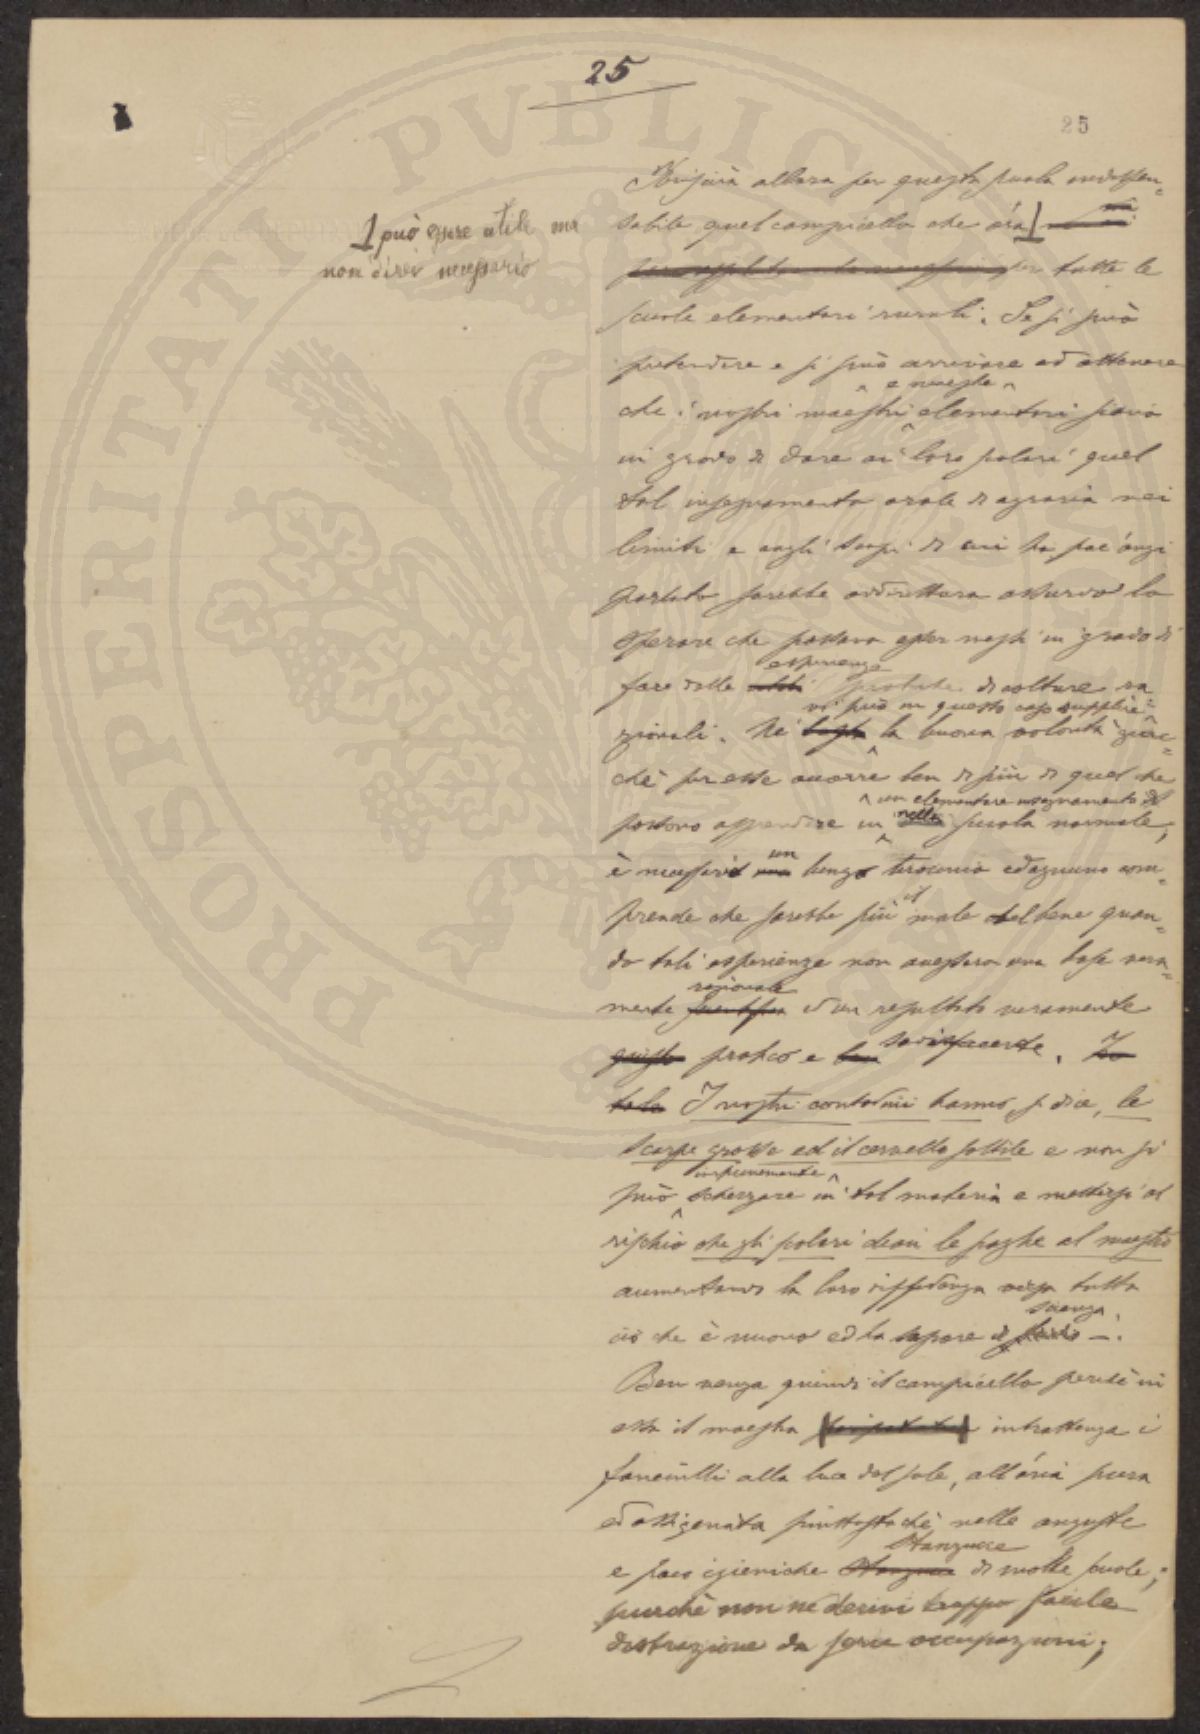 25
25
allora per questa scuola indispen-
sabile quel campicello che ora
può essere utile ma
non direi necessario
per tutte le
scuole elementari rurali. Se si può
pretendere e si può arrivare ad ottenere
e maestre
che i nostri maestri elementari siano
in grado di dare ai loro scolari quel
tal insegnamento orale di agraria nei
limiti e cogli scopi di cui ho poc'anzi
parlato sarebbe addirittura assurdo lo
sperare che possano esser messi in grado di
esperienze
fare delle pratiche di colture ra
vi può in questo caso supplire
zionali. Nè basta la buona volontà giac-
chè per esse occorre ben di più di quel che
un elementare insegnamento di
possono apprendere in nella scuola normale,
un
è necessario una lungo tirocinio ed ognuno com-
il
prende che sarebbe più male del bene quan-
do tali esperienze non avessero una base vera-
razionale
mente scientifica ed un resultato veramente
giusto pratico e sodisfacente.
I nostri contadini hanno, si dice, le
scarpe grosse ed il cervello sottile e non si
impunemente
può scherzare in tal materia e mettersi al
rischio che gli scolari dieno le paghe al maestro
aumentando la loro diffidenza verso tutto
scienza
ciò che è nuovo ed ha sapore di
Ben venga quindi il campicello perchè in
esso il maestro intrattenga i
fanciulli alla luce del sole, all'aria pura
ed ossigenata piuttostochè nelle anguste
stanzucce
e poco igieniche di molte scuole;
purchè non ne derivi troppo facile
distrazione da serie occupazioni;
PROSPERITATI PVBLICAE